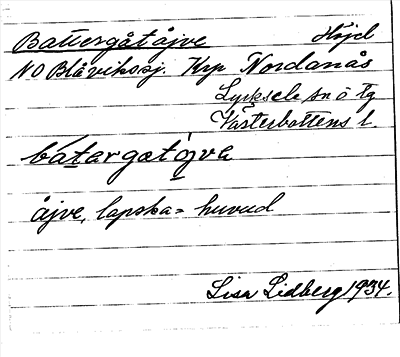 Battergåtåjve Höjd
NO Blåviksj. Krp Nordanås
Lycksele sn o tg
Västerbottens l.
bátargatájva
åjve, lapska = huvud
Lisa Lidberg 1934.